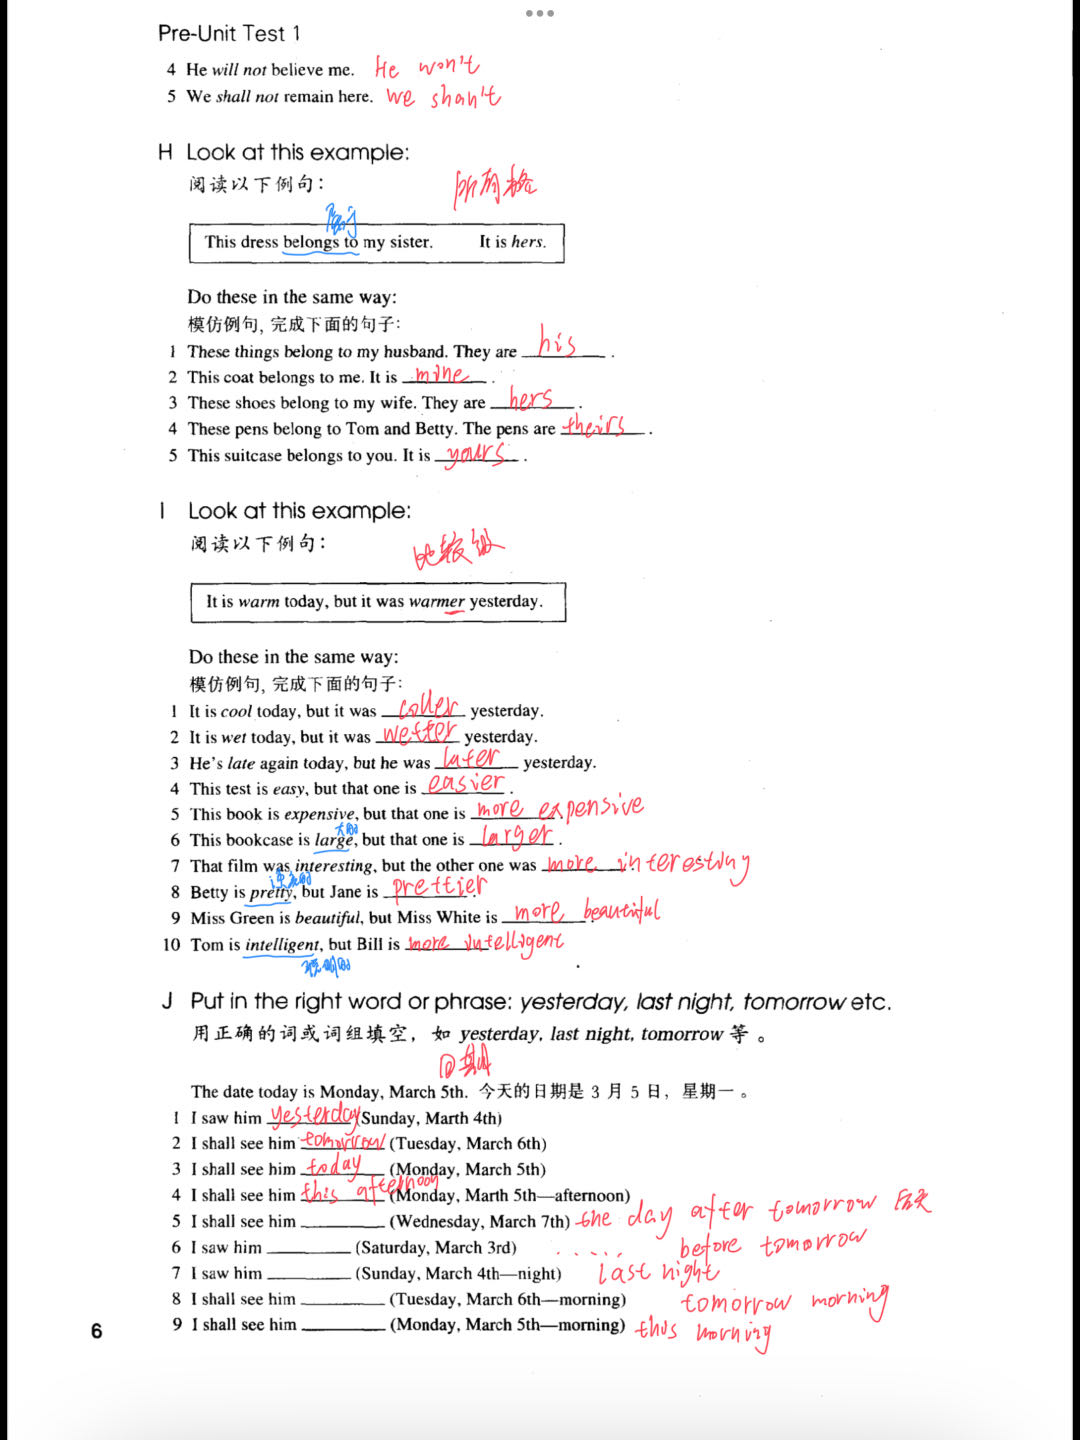 Pre-Unit Test 1
4 He will not believe me. He won't
5 We shall not remain here. we shan't
H Look at this example:
阅读以下例句：
所有格
This dress belongs to my sister. It is hers.
Do these in the same way:
模仿例句, 完成下面的句子：
1 These things belong to my husband. They are his.
2 This coat belongs to me. It is mine.
3 These shoes belong to my wife. They are hers.
4 These pens belong to Tom and Betty. The pens are theirs.
5 This suitcase belongs to you. It is yours.
I Look at this example:
阅读以下例句：
比较级
It is warm today, but it was warmer yesterday.
Do these in the same way:
模仿例句, 完成下面的句子：
1 It is cool today, but it was coller yesterday.
2 It is wet today, but it was wetter yesterday.
3 He's late again today, but he was later yesterday.
4 This test is easy, but that one is easier.
5 This book is expensive, but that one is more expensive
大的
6 This bookcase is large, but that one is larger.
7 That film was interesting, but the other one was more interesting
8 Betty is pretty, but Jane is prettier.
9 Miss Green is beautiful, but Miss White is more beautiful.
10 Tom is intelligent, but Bill is more intelligent
聪明的
J Put in the right word or phrase: yesterday, last night, tomorrow etc.
用正确的词或词组填空，如 yesterday, last night, tomorrow 等。
日期
The date today is Monday, March 5th. 今天的日期是 3 月 5 日，星期一。
1 I saw him yesterday (Sunday, Marth 4th)
2 I shall see him tomorrow (Tuesday, March 6th)
3 I shall see him today (Monday, March 5th)
4 I shall see him this afternoon (Monday, Marth 5th—afternoon)
5 I shall see him ________ (Wednesday, March 7th) the day after tomorrow 后天
6 I saw him ________ (Saturday, March 3rd) ..... before tomorrow
7 I saw him ________ (Sunday, March 4th—night) last night
8 I shall see him ________ (Tuesday, March 6th—morning) tomorrow morning
9 I shall see him ________ (Monday, March 5th—morning) this morning
6